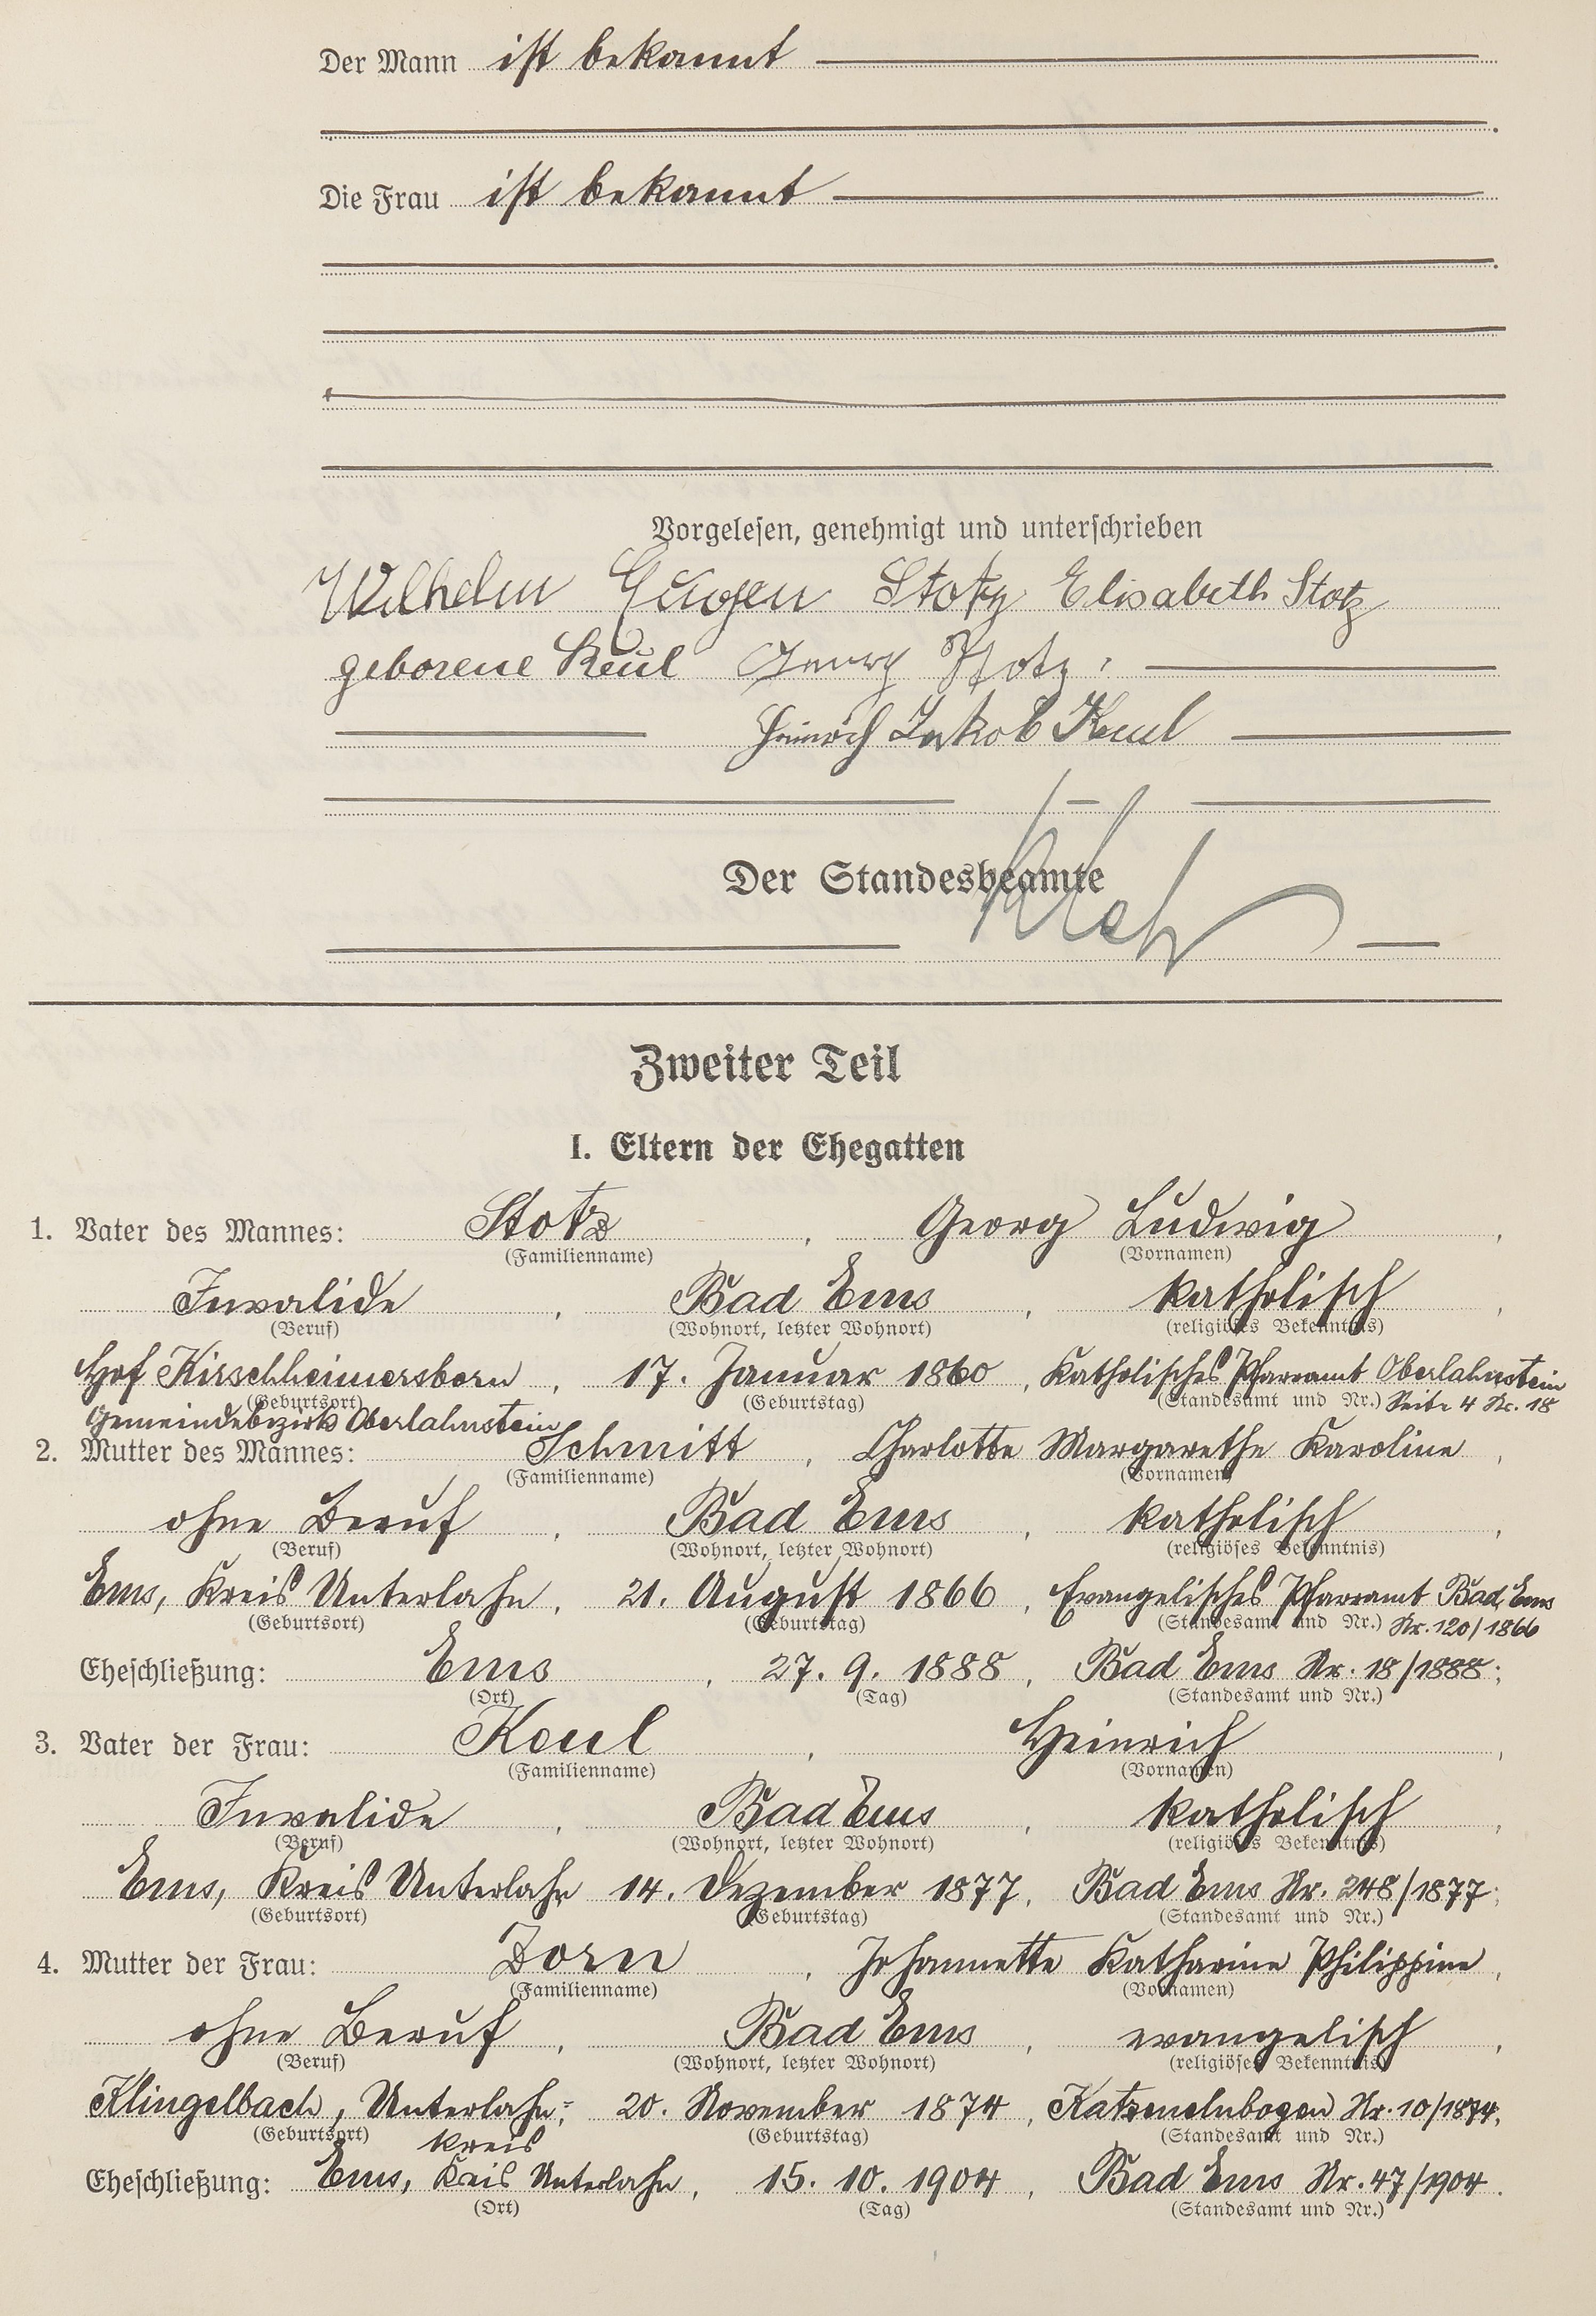 Der Mann ist bekannt
Die Frau ist bekannt
Vorgelesen, genehmigt und unterschrieben
Wilhelm Eugen Stotz Elisabeth Stotz
geborene Keul Georg Stotz.
Heinrich Jakob Keul
Der Standesbeamte
Zweiter Teil
I. Eltern der Ehegatten
1. Vater des Mannes: Stotz, Georg Ludwig,
(Familienname) (Vornamen)
Invalide, Bad Ems, katholisch,
(Beruf) (Wohnort, letzter Wohnort) (religiöses Bekenntnis)
Hof Kirschheimersborn, 17. Januar 1860, Katholisches Pfarramt Oberlahnstein
(Geburtsort) (Geburtstag) (Standesamt und Nr.) Seite 4 Nr. 18
Gemeindebezirks Oberlahnstein
2. Mutter des Mannes: Schmitt, Charlotte Margarethe Karoline,
(Familienname) (Vornamen)
ohne Beruf, Bad Ems, katholisch,
(Beruf) (Wohnort, letzter Wohnort) (religiöses Bekenntnis)
Ems, Kreis Unterlahn, 21. August 1866, Evangelisches Pfarramt Bad Ems
(Geburtsort) (Geburtstag) (Standesamt und Nr.) Nr. 120/1866
Eheschließung: Ems, 27. 9. 1888, Bad Ems Nr. 18/1888;
(Ort) (Tag) (Standesamt und Nr.)
3. Vater der Frau: Keul, Heinrich,
(Familienname) (Vornamen)
Invalide, Bad Ems, katholisch,
(Beruf) (Wohnort, letzter Wohnort) (religiöses Bekenntnis)
Ems, Kreis Unterlahn 14. Dezember 1877, Bad Ems Nr. 248/1877;
(Geburtsort) (Geburtstag) (Standesamt und Nr.)
4. Mutter der Frau: Dorn, Johannette Katharine Philippine,
(Familienname) (Vornamen)
ohne Beruf, Bad Ems, evangelisch,
(Beruf) (Wohnort, letzter Wohnort) (religiöses Bekenntnis)
Klingelbach, Unterlahn=, 20. November 1874, Katzenelnbogen Nr. 10/1874,
(Geburtsort) kreis (Geburtstag) (Standesamt und Nr.)
Eheschließung: Ems, Kreis Unterlahn, 15. 10. 1904, Bad Ems Nr. 47/1904.
(Ort) (Tag) (Standesamt und Nr.)